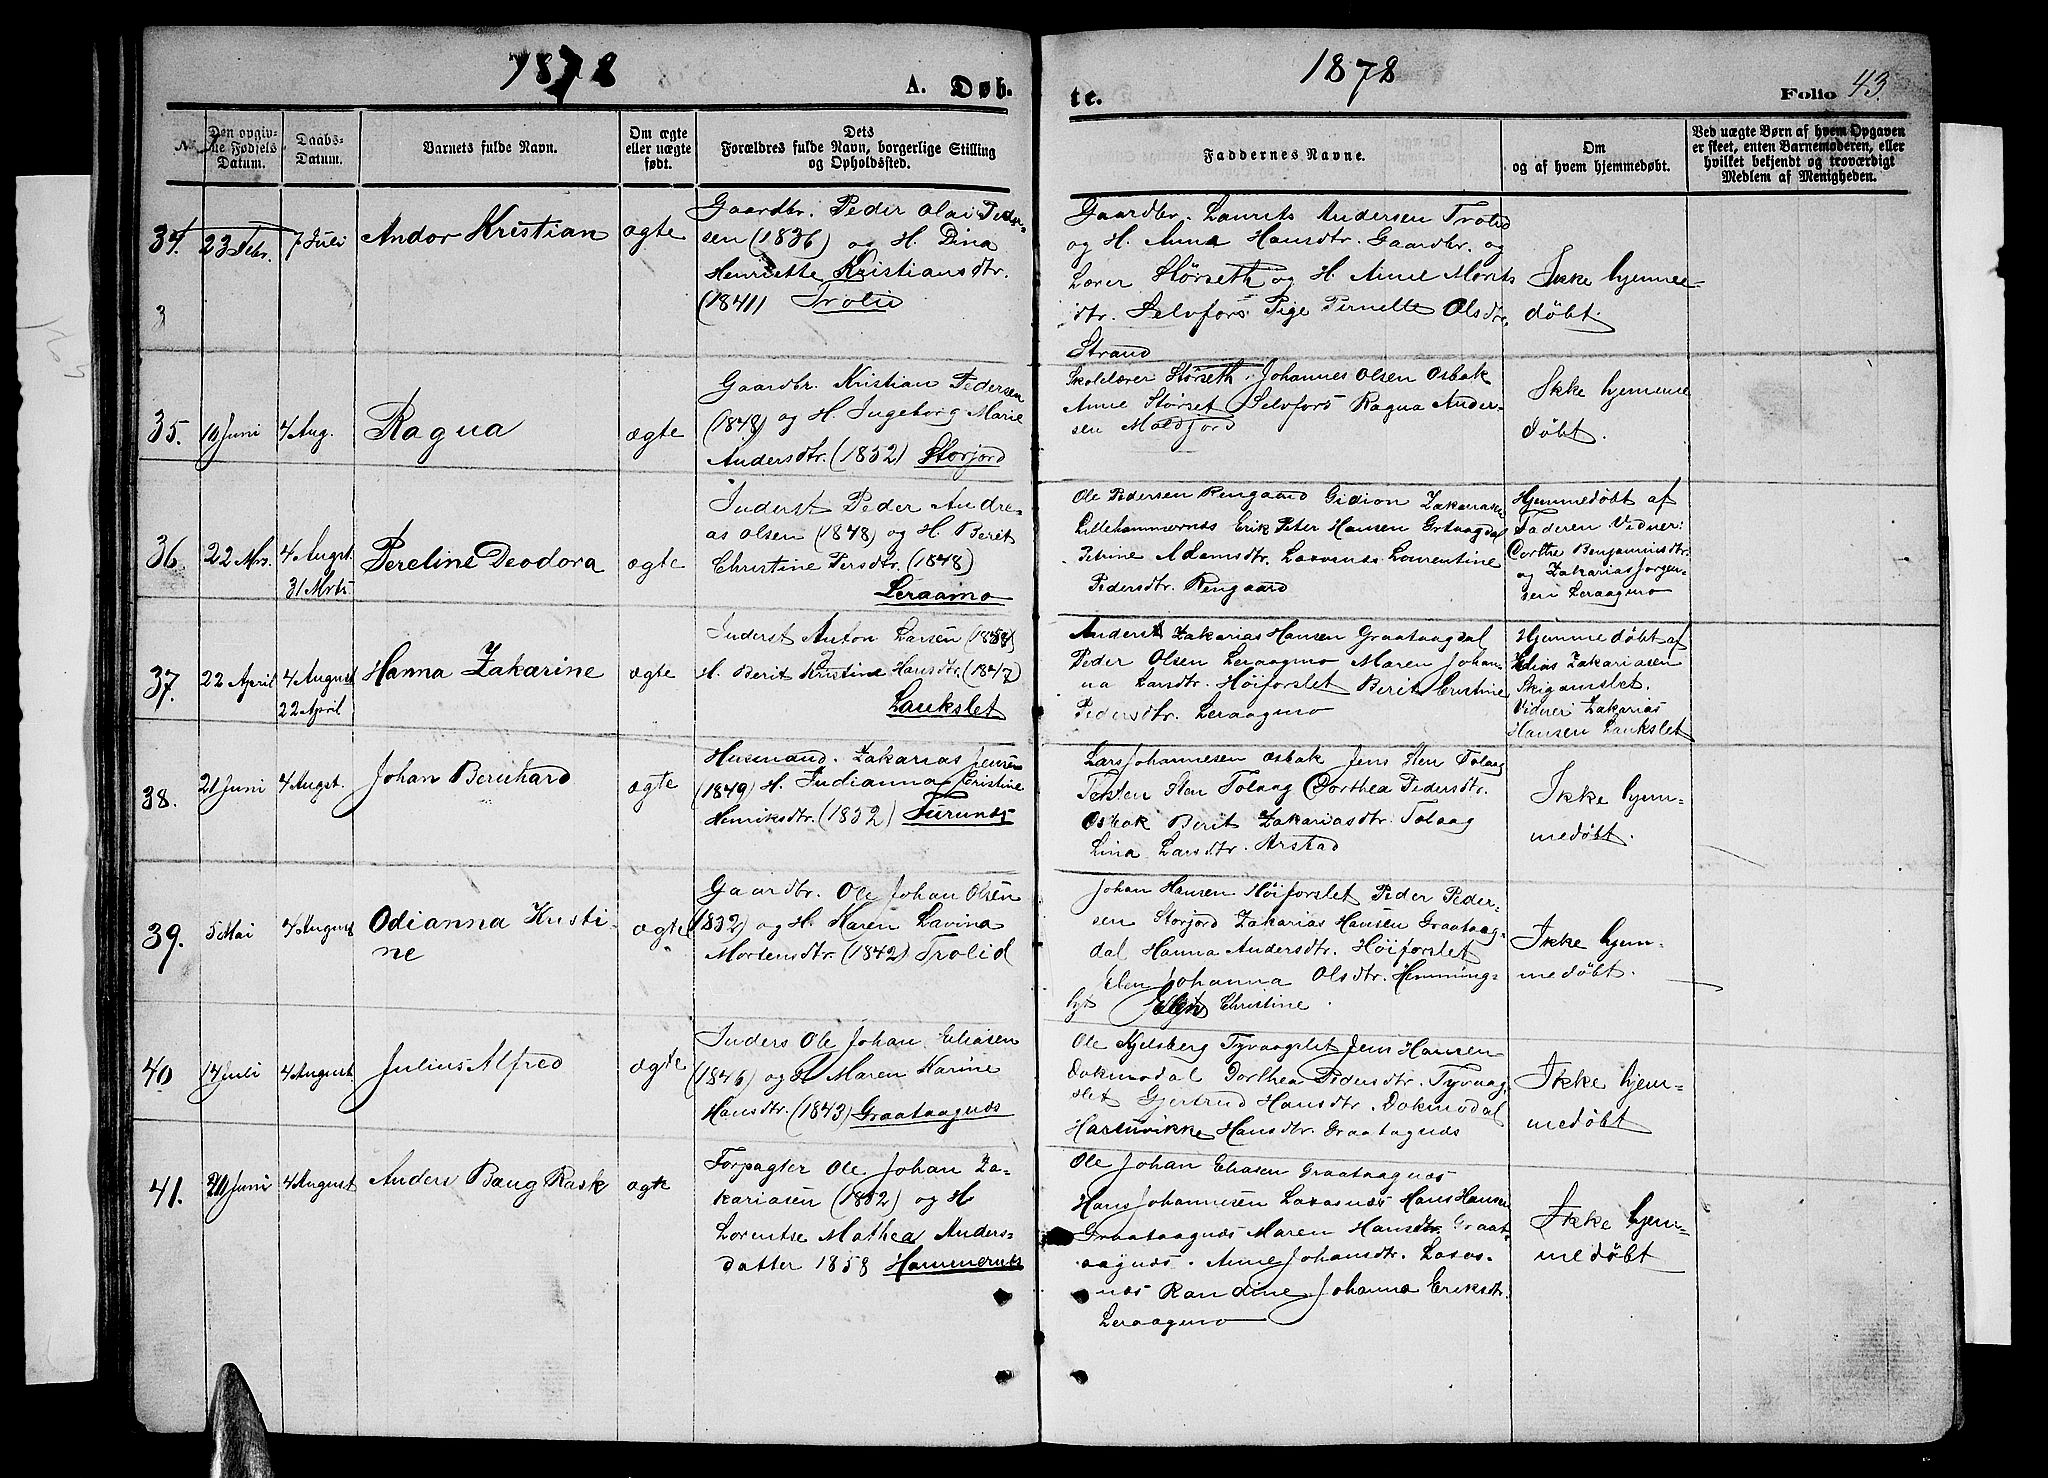 1878
A. Døb-
No.
Den opgiv-
ne Fødsels
Datum.
Daabs-
Datum.
Barnets fulde Navn.
Om ægte
eller uægte
født.
Dets
Forældres fulde Navn, borgerlige Stilling
og Opholdssted.
34.
23 Febr.
7 Juli
Andor Kristian
ægte
Gaardbr. Peder Olai Peder-
sen (1836) og H. Dina
Henriette Kristiansdtr.
(1841) Trolid
3
35.
4 Aug.
Ragna
ægte
Gaardbr. Kristian Pedersen
(1848) og H. Ingeborg Marie
Andersdtr. (1852) Storjord
36
22 Mrs.
4 Augst
31 Mrts
Pereline Deodora
ægte
Inderst Peder Andre-
as Olsen (1848) og H. Berit
Christine Persdtr. (1848)
Leraamo
37.
22 April
4 August
22 April
Hanna Zakarine
ægte
Inderst Anton Larsen
H. Berit Kristine Hansdtr. (1847)
Laukslet
38.
21 Juni
4 Augst.
Johan Bernhard
ægte
Husmand. Zakarias Jensen
(1849) H. Indianna Cristine
Henriksdtr. (1852)
39.
5 Mai
4 August
Odianna Kristi-
ne
ægte
Gaardbr. Ole Johan Olsen
1832) og H. Karen Lavina
Mortensdtr. (1842) Trolid
40
4 August
Julius Alfred
ægte
Inders Ole Johan Eliasen
(1846) og H Maren Karine
Hansdtr. (1843) Graataagnæs
41.
Juni
4 August
Anders Baug Rask
ægte
Forpagter Ole Johan Za-
kariasen (1852) og H
Lorentse Mathea Anders-
datter 1858 Hammernes
1878
te.
Folio 43
Faddernes Navne.
Om
og af hvem hjemmedøbt.
Ved uægte Børn af hvem Opgaven
er skeet, enten Barnemoderen, eller
hvilket bekjendt og troværdigt
Medlem af Menigheden.
Gaardbr. Laurits Andersen Trolid
og H. Anna Hansdtr. Gaardbr. og
Lærer Størseth og H. Anne Morits
dtr. Selvfors Pige Pernelle Olsdtr.
Strand
Ikke hjemme-
døbt.
Skolelærer Størseth. Johannes Olsen Osbak
Anne Størset Selvfors Ragna Ander-
sen Moldjord
Ikke hjemme
døbt.
Ole Pedersen Rengaard Gidion
Lillehammernes Erik Peter Hansen
Petrine Adamsdtr. Lourentine
Pedersdtr. Rengaard
Hjemmedøbt af
Faderen Vidner:
Dorthe Benjaminsdtr.
og Zakarias Jørgen-
sen Leraagmo
Zakarias Hansen Graataagdal
Peder Olsen Leraagmo Maren Johan-
na Larsdtr. Høiforslet Berit Cristine
Pedersdtr. Leraagmo
Hjemme døbt af
Elias Zakariasen
Vidner Zakarias
Hansen Laukslet
Lars Johannesen Osbak Jens Sten Tolaag
Sten Tolaag Dorthea Pedersdtr.
Osbak Berit Zakariasdtr. Tolaag
Lina Larsdtr. Arstad
Ikke hjem-
medøbt.
Johan Hansen Høiforslet Peder Peder-
sen Storjord Zakarias Hansen Graataag-
dal Hanna Andersdtr. Høiforslet
Elen Johanna Olsdtr. Hemming-
Christine
Ikke hjem-
medøbt.
Ole Kjelsberg Tyvaagslet Jens Hansen
Dokmodal Dorthea Pedersdtr. Tyvaag
slet Gjertrud Hansdtr. Dokmodal
Hansdtr. Graatagnæs
Ikke hjem-
medøbt
Ole Johan Eliasen Graataagnæs
Hans Johannesen Hans Hansen
Graataagnæs Maren Hansdtr. Graat-
aagnæs. Anne Johansdtr.
Randine Johanna Eriksdtr.
Leraagmo
Ikke hjem-
medøbt